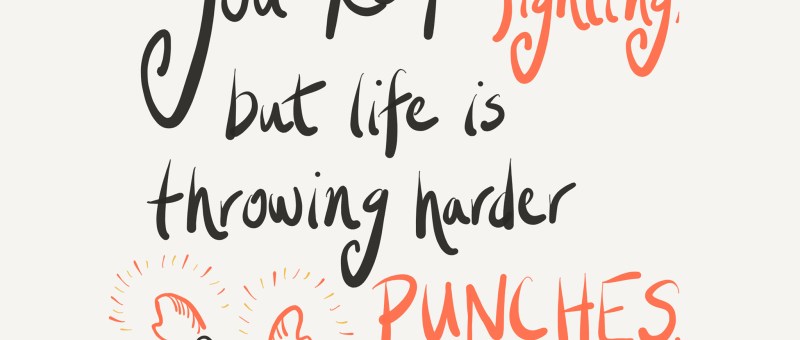 you keep fighting,
but life is
throwing harder
PUNCHES.